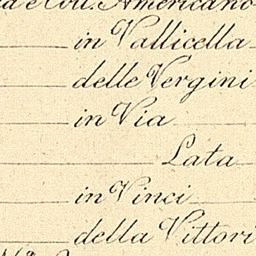 e Coll. Americano
in Vallicella
delle Vergini
in Via
Lata
in Vinci
della Vittori